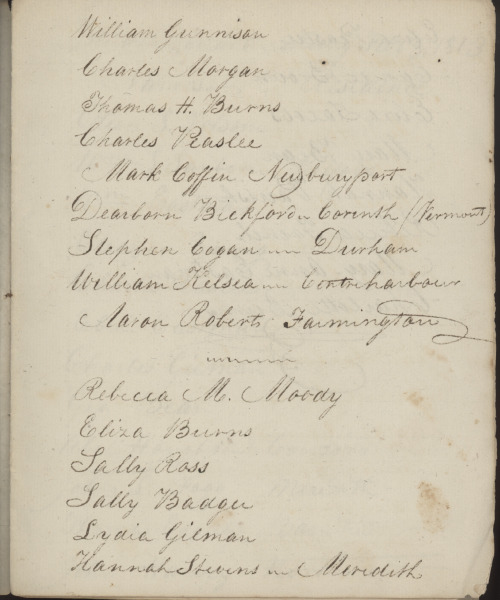 William Gunnison
Charles Morgan
Thomas H. Burns
Charles Peaslee
Mark Coffin Newburyport
Dearborn Bickford Corinth (Vermont)
Stephen Cogan Durham
William Kelsea Centreharbour
Aaron Roberts Farmington
Rebecca M. Moody
Eliza Burns
Sally Ross
Sally Badger
Lydia Gilman
Hannah Stevens Meredith